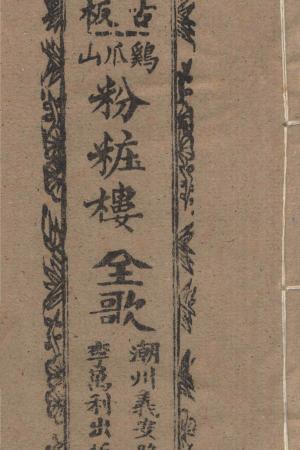 古板
鷄爪山
粉粧樓
全歌
潮州義安路
李萬利出版